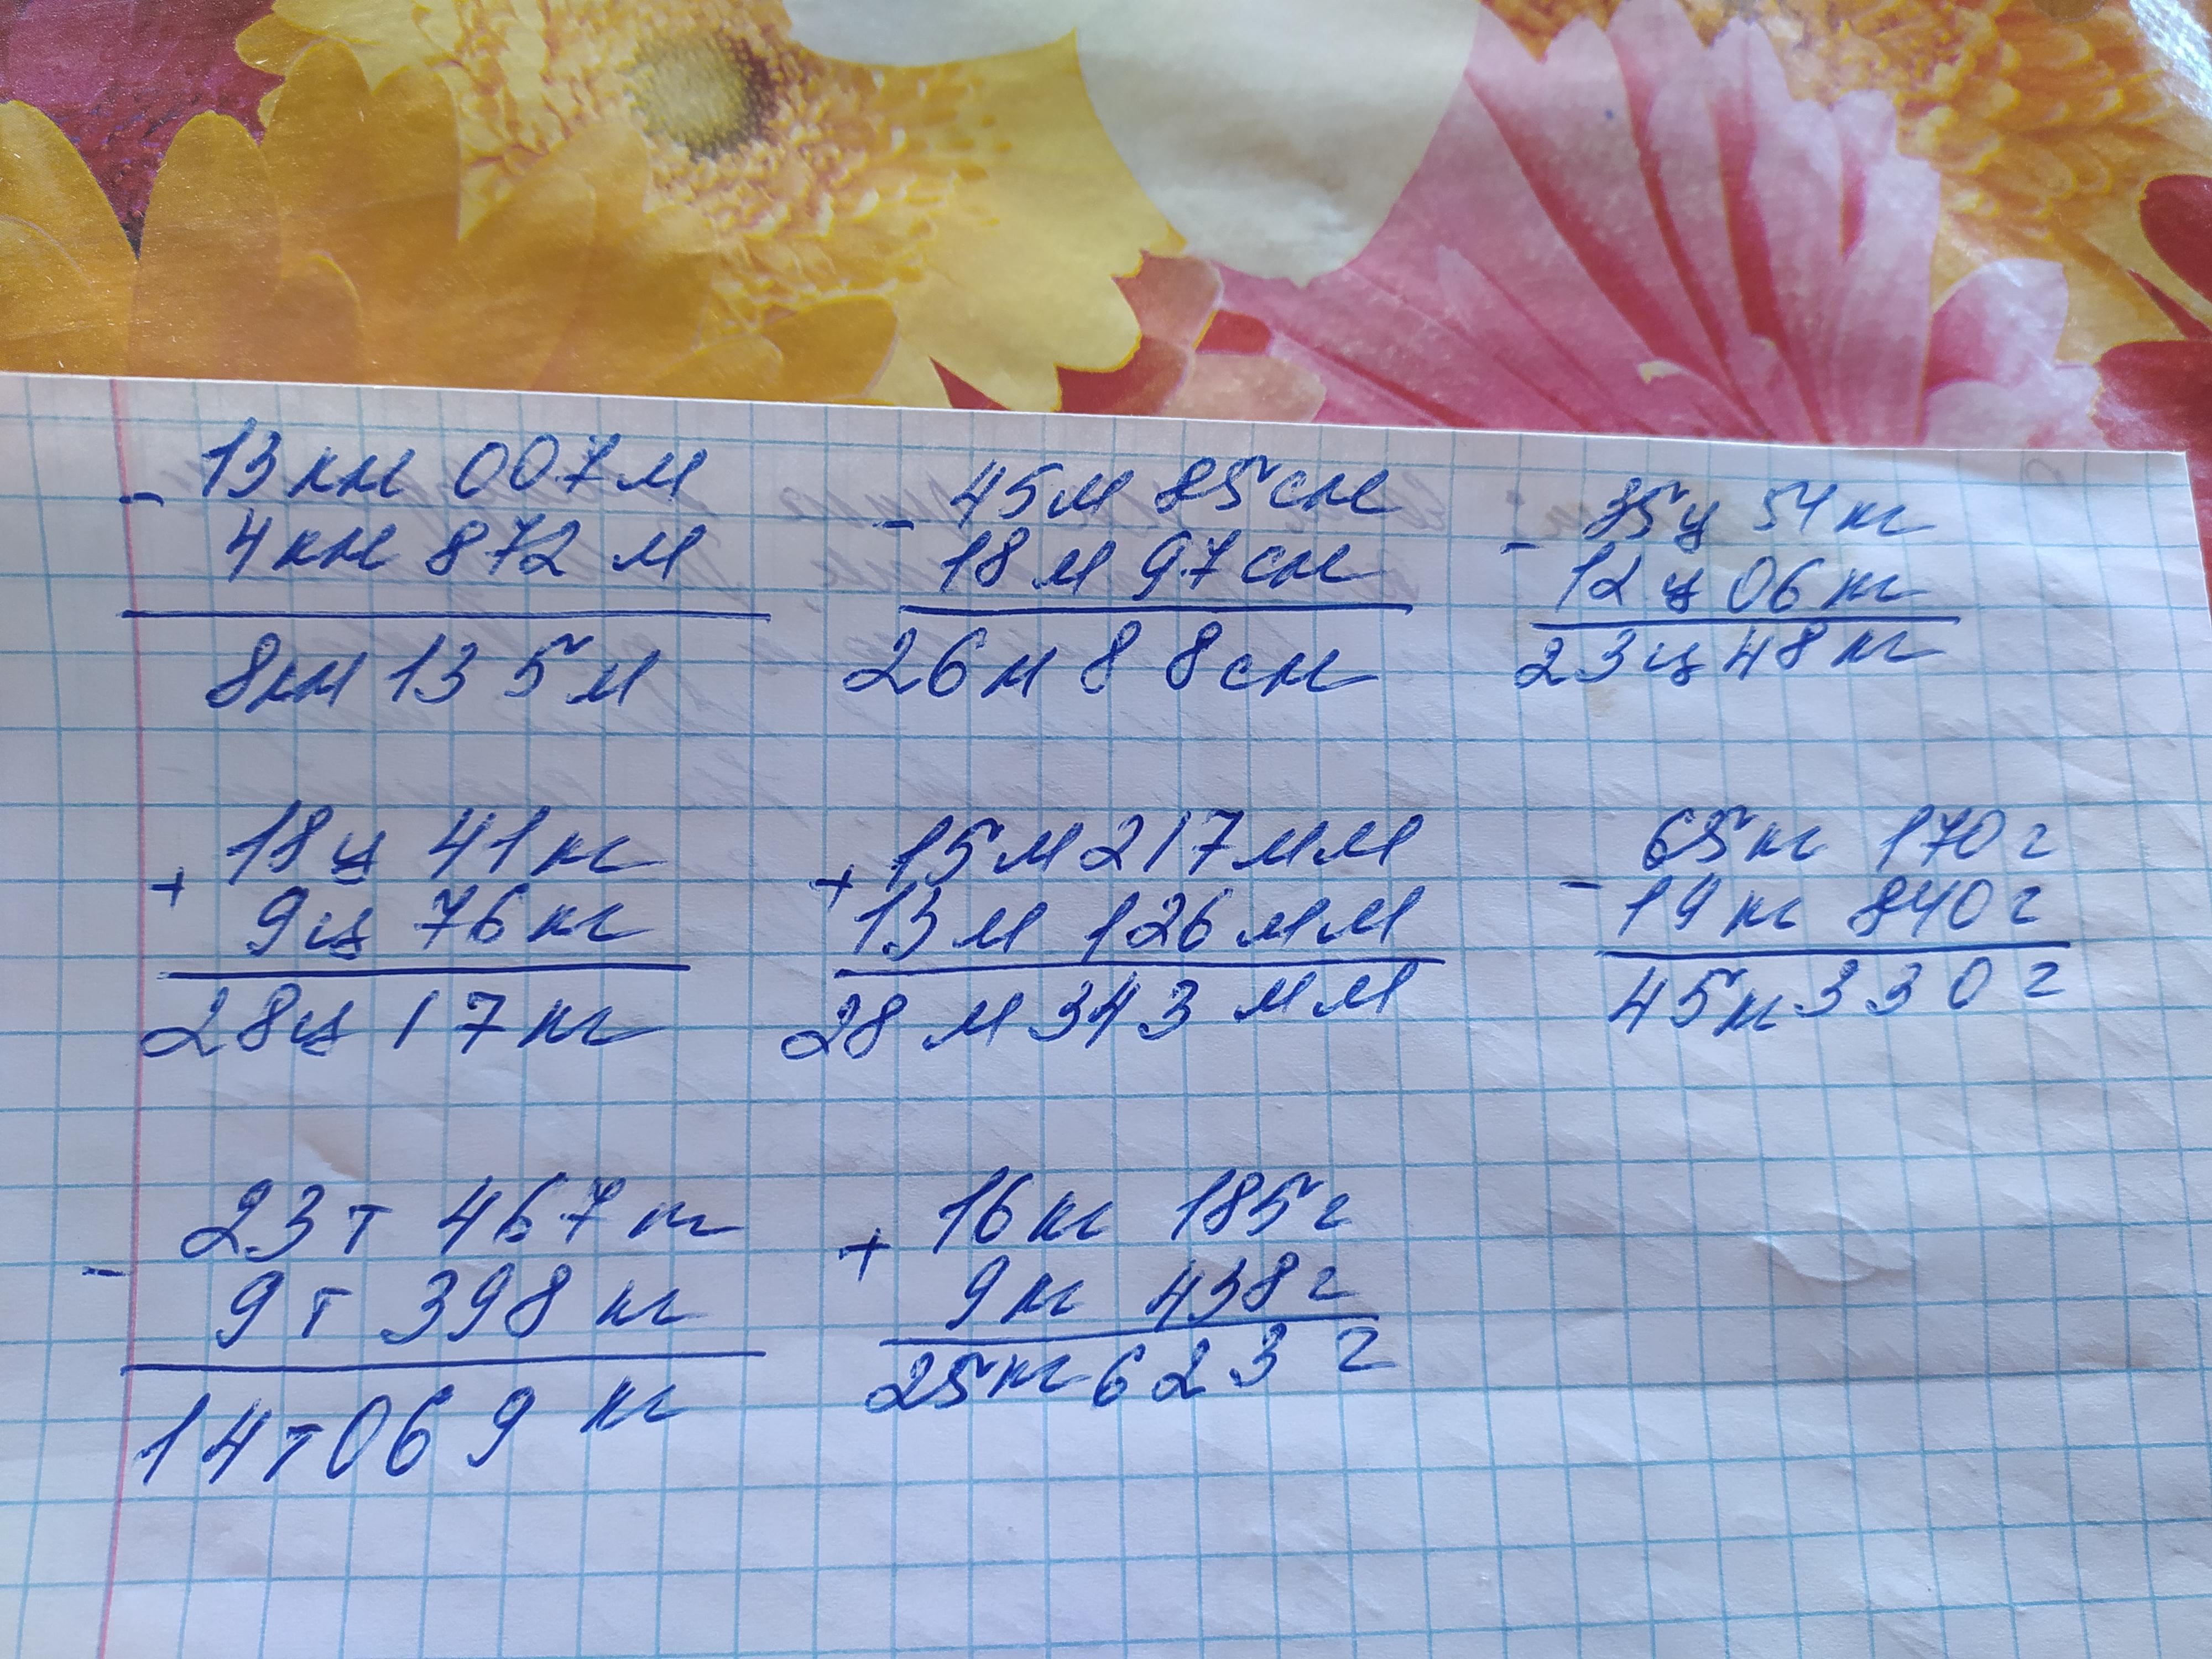 - 13 км 007 м
4 км 872 м
8 км 135 м
- 45 м 85 см
18 м 97 см
26 м 88 см
- 35 ц 54 кг
12 ц 06 кг
23 ц 48 кг
+ 18 ц 41 кг
9 ц 76 кг
28 ц 17 кг
+ 15 м 217 мм
13 м 126 мм
28 м 343 мм
- 65 кг 170 г
19 кг 840 г
45 кг 330 г
- 23 т 467 кг
9 т 398 кг
14 т 069 кг
+ 16 кг 185 г
9 кг 438 г
25 кг 623 г